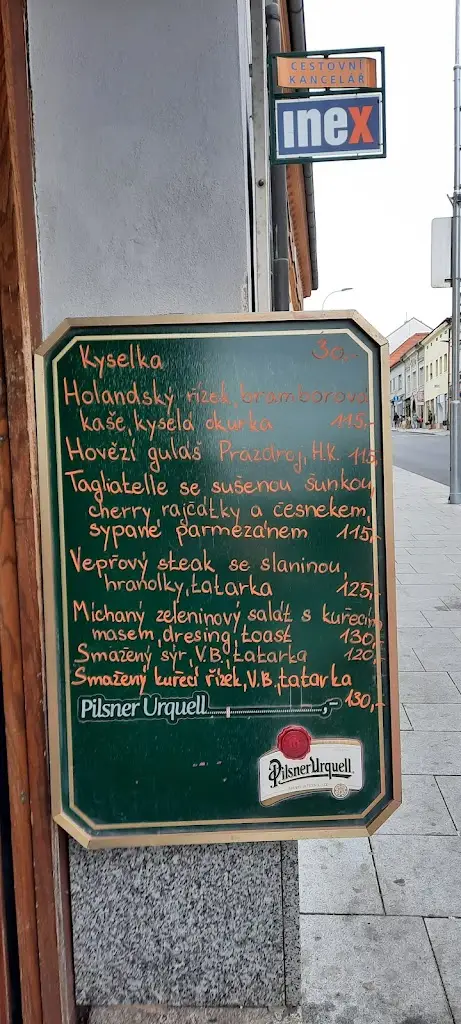 CESTOVNÍ
KANCELÁŘ
inex
Kyselka 30,-
Holandský řízek, bramborová
kaše, kyselá okurka 115,-
Hovězí guláš Prazdroj, H.K. 115,
Tagliatelle se sušenou šunkou,
cherry rajčátky a česnekem,
sypané parmezánem 115,-
Vepřový steak se slaninou,
hranolky, tatarka 125,-
Míchaný zeleninový salát s kuřecím
masem, dresing, toast 130,-
Smažený sýr, V.B., tatarka 120,-
Smažený kuřecí řízek, V.B., tatarka
130,-
Pilsner Urquell ,-
Pilsner Urquell